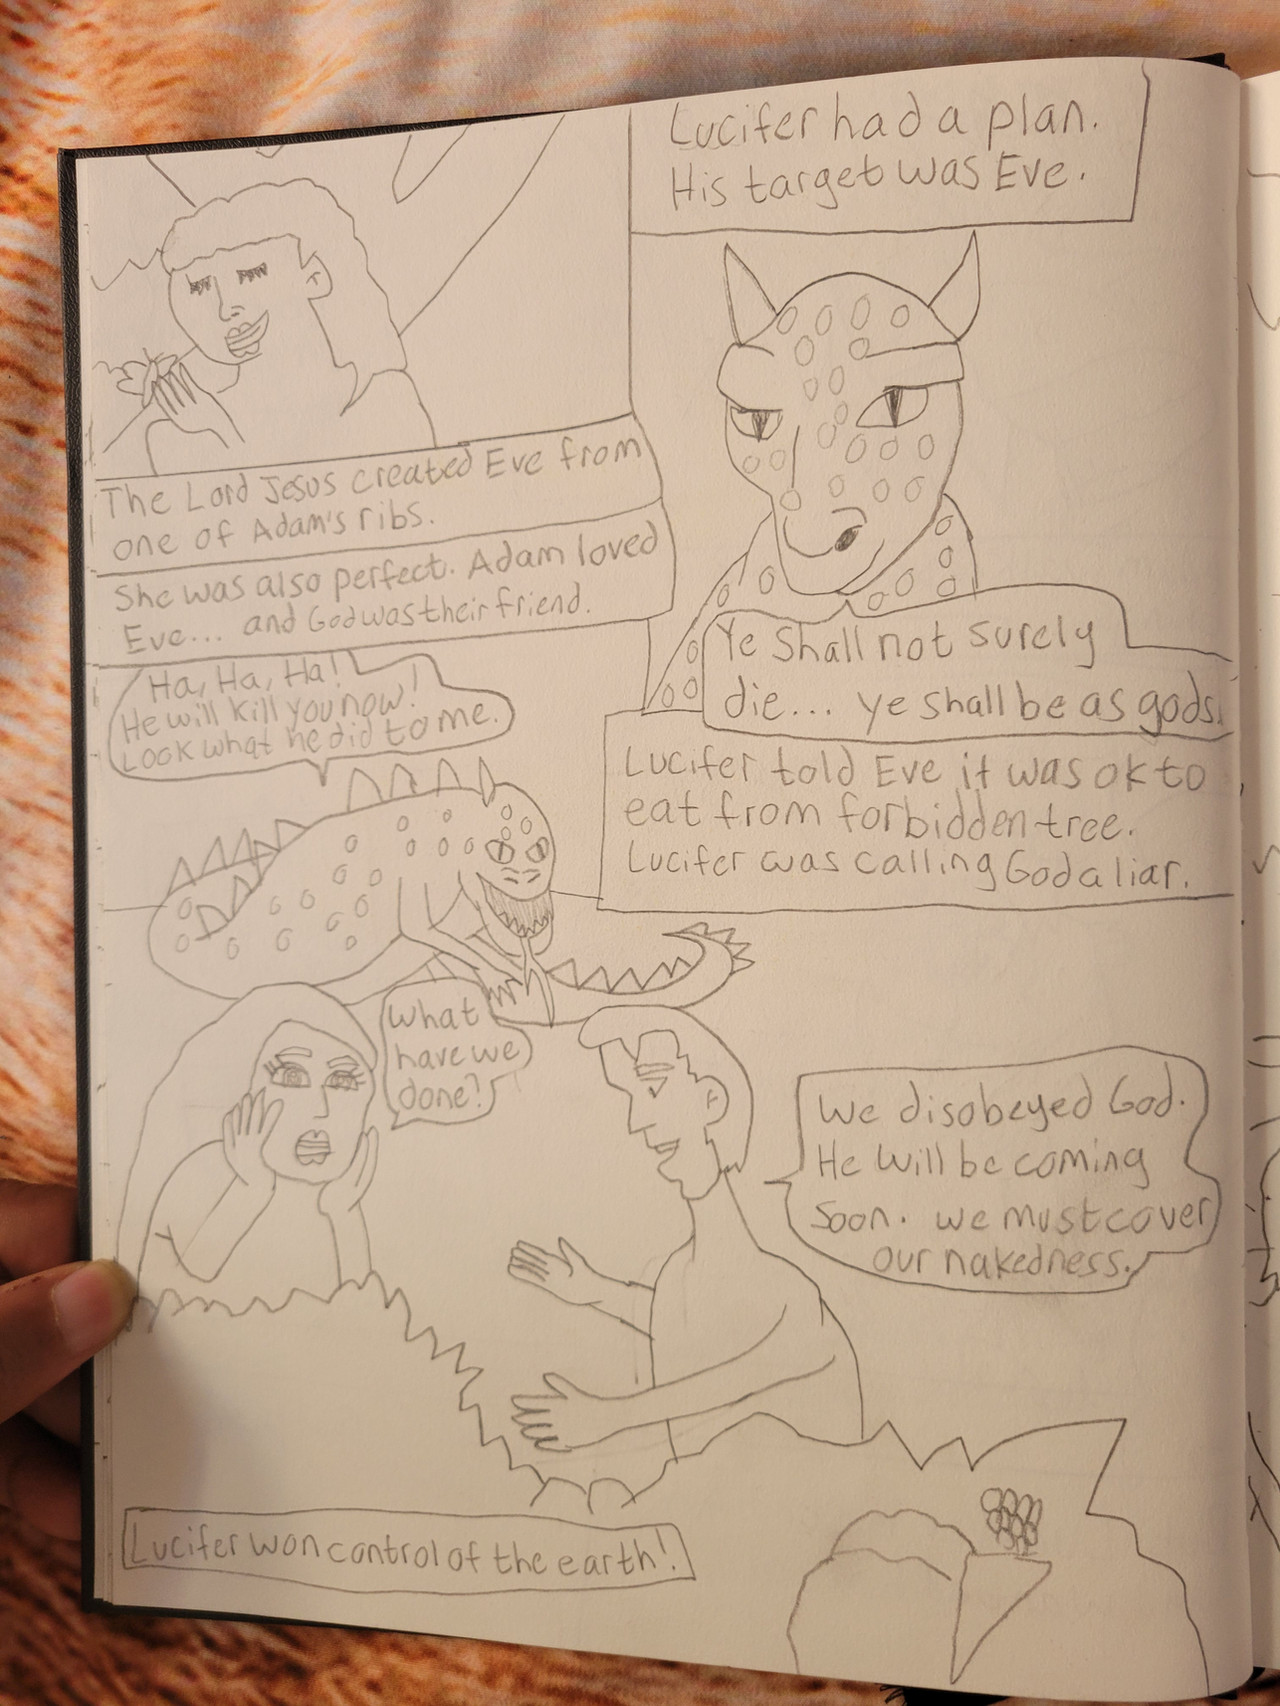 The Lord Jesus created Eve from
one of Adam's ribs.
She was also perfect. Adam loved
Eve... and God was their friend.
Lucifer had a plan.
His target was Eve.
Ye shall not surely
die... ye shall be as gods.
Lucifer told Eve it was ok to
eat from forbidden tree.
Lucifer was calling God a liar.
Ha, Ha, Ha!
He will kill you now!
Look what he did to me.
What
have we
done?
We disobeyed God.
He will be coming
soon. we must cover
our nakedness.
Lucifer won control of the earth!